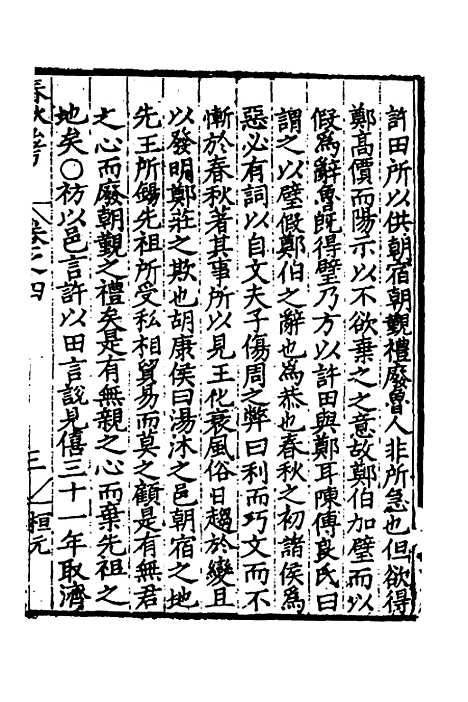 許田所以供朝宿朝覲禮廢魯人非所急也但欲得
鄭高價而陽示以不欲棄之之意故鄭伯加璧而以
假爲辭魯旣得璧乃方以許田與鄭耳陳傅良氏曰
謂之以璧假鄭伯之辭也爲恭也春秋之初諸侯爲
惡必有詞以自文夫子傷周之弊曰利而巧文而不
慚於春秋著其事所以見王化衰風俗日趨於變且
以發明鄭莊之欺也胡康侯曰湯沐之邑朝宿之地
先王所錫先祖所受私相貿易而莫之顧是有無君
之心而廢朝覲之禮矣是有無親之心而棄先祖之
地矣〇祊以邑言許以田言說見僖三十一年取濟
卷之四
三
桓元